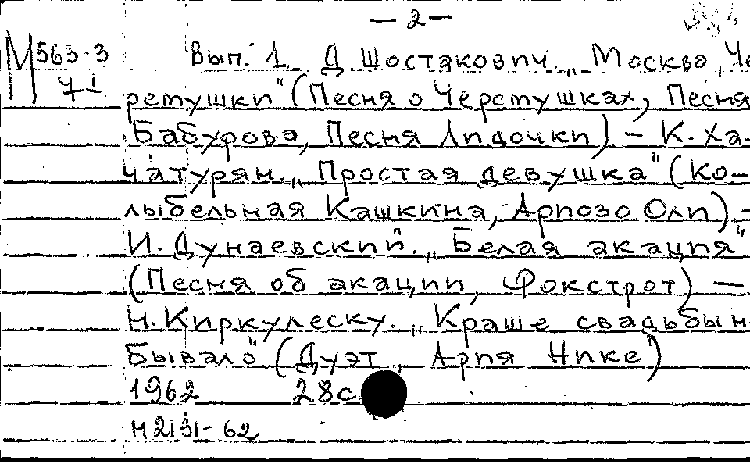 — 2 —
М 563-3 Вып. 1. Д. Шостакович. „Москва, Че-
ремушки" (Песня о Черемушках, Песня
Бабурова, Песня Лидочки) – К. Ха-
чатурян. „Простая девушка" (Ко-
лыбельная Кашкина, Ариозо Оли) –
И. Дунаевский. „Белая акация"
(Песня об акации, Фокстрот) —
Н. Киркулеску. „Краше свадьбы н
Бывало" (Дуэт, Ария Нике)
1962 28с